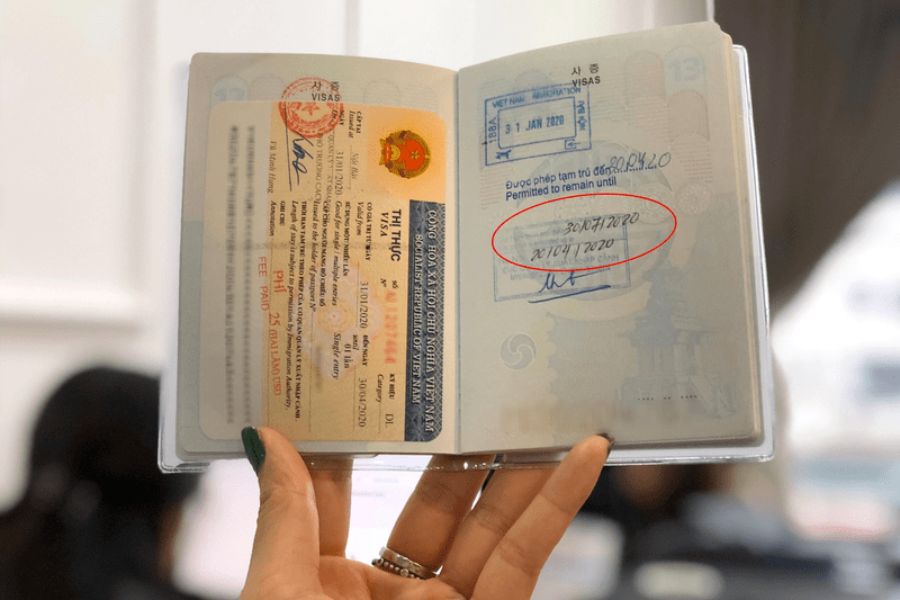 사 증
VISAS
CỘNG HÒA XÃ HỘI CHỦ NGHĨA VIỆT NAM
SOCIALIST REPUBLIC OF VIET NAM
THỊ THỰC
VISA
SỐ
Nº
KÝ HIỆU DL
Category
CÓ GIÁ TRỊ TỪ NGÀY 31/01/2020 ĐẾN NGÀY 30/04/2020
Valid from until
SỬ DỤNG MỘT/NHIỀU LẦN 01 lần
Good for single/multiple entries Single entry
CẤP CHO NGƯỜI MANG HỘ CHIẾU SỐ
Issued to the holder of passport Nº
THỜI HẠN TẠM TRÚ THEO PHÉP CỦA CƠ QUAN QUẢN LÝ XUẤT NHẬP CẢNH.
Length of stay is subject to permission by Immigration Authority.
GHI CHÚ
Annotation
CẤP TẠI Nội Bài
Issued at
NGÀY 31/01/2020
Vũ Minh Hùng
PHÍ 25
FEE PAID USD
사 증
VISAS
VIET NAM IMMIGRATION
188A
31 JAN 2020
Được phép tạm trú đến
Permitted to remain until
30/07/2020
20/04/2020